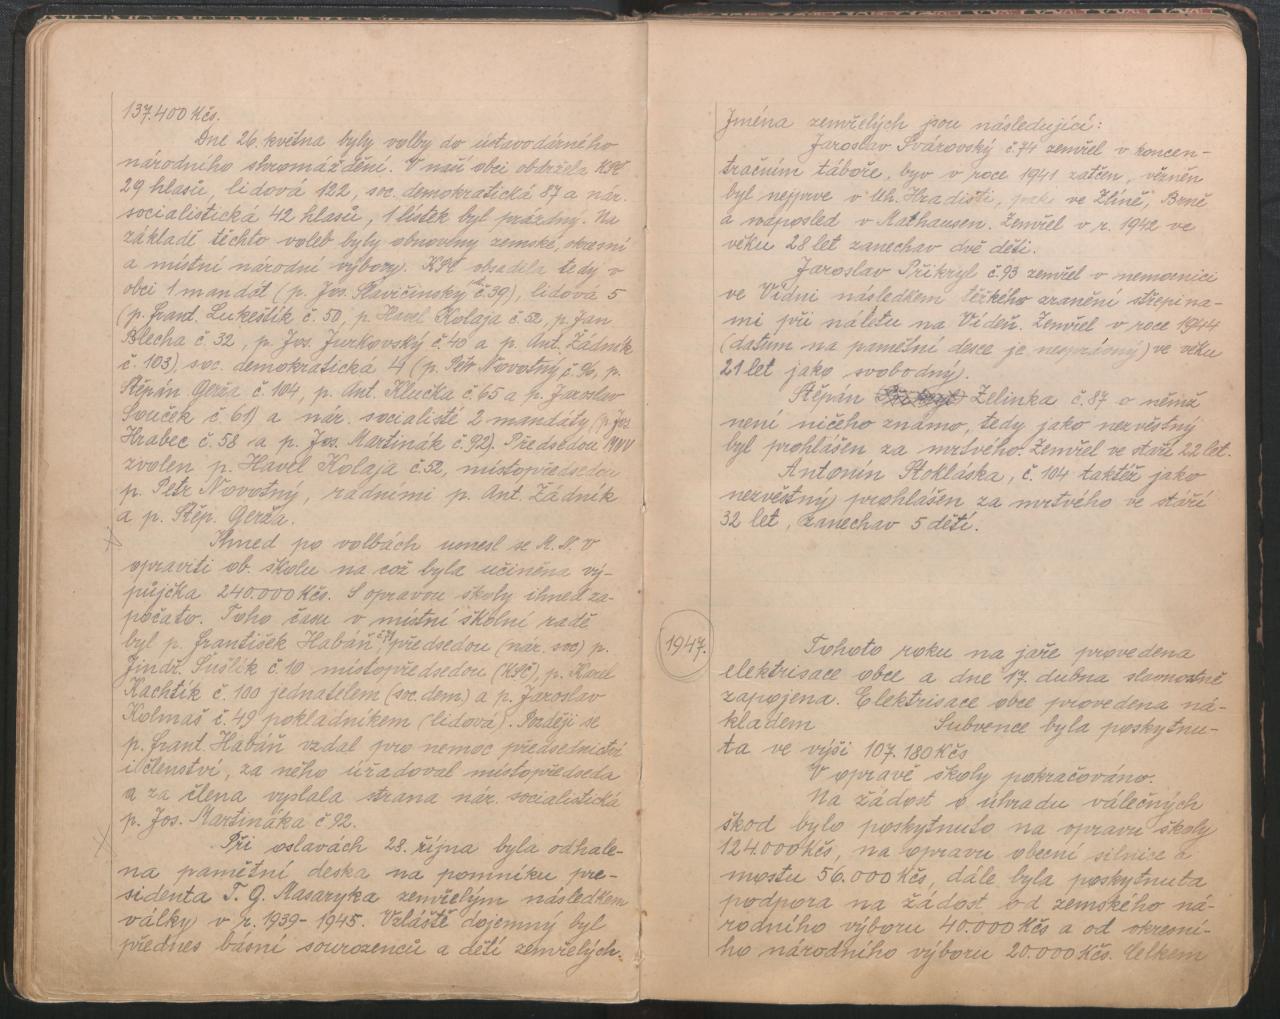 137.400 Kčs.
Dne 26. května byly volby do ústavodárného
národního shromáždění. V naší obci obdržela KSČ
29 hlasů, lidová 122, soc. demokratická 87 a nár.
socialistická 42 hlasů, 1 lístek byl prázdný. Na
základě těchto voleb byly obnoveny zemské, okresní
a místní národní výbory. KSČ obsadila tedy v
obci 1 mandát (p. Jos. Slavičinský č. 39), lidová 5
(p. Frant. Lukeštík č. 50, p. Havel Kolaja č. 52, p. Jan
Blecha č. 32, p. Jos. Jurkovský č. 40 a p. Ant. Žádník
č. 103), soc. demokratická 4 (p. Petr Novotný č. 96, p.
Štěpán Gerža č. 104, p. Ant. Klučka č. 65 a p. Jaroslav
Souček č. 61) a nár. socialisté 2 mandáty (p. Jos.
Hrabec č. 58 a p. Jos. Martinák č. 92). Předsedou MNV
zvolen p. Havel Kolaja č. 52, místopředsedou
p. Petr Novotný, radními p. Ant. Žádník
a p. Štěp. Gerža.
Ihned po volbách usnesl se M.N.V
opraviti ob. školu na což byla učiněna vý-
půjčka 240.000 Kčs. S opravou školy ihned za-
počato. Toho času v místní školní radě
byl p. František Habáň č. 71 předsedou (nár. soc) p.
Jindř. Sušlík č. 10 místopředsedou (KSČ), p. Karel
Kachtík č. 100 jednatelem (soc. dem) a p. Jaroslav
Kolmaš č. 49 pokladníkem (lidová). Později se
p. Frant. Habáň vzdal pro nemoc předsednictví
i členství, za něho úřadoval místopředseda
a za člena vyslala strana nár. socialistická
p. Jos. Martináka č. 92.
Při oslavách 28. října byla odhale-
na pamětní deska na pomníku pre-
sidenta T. G. Masaryka zemřelým následkem
války v r. 1939-1945. Vzláště dojemný byl
přednes básní sourozenců a dětí zemřelých.
Jména zemřelých jsou následující:
Jaroslav Švárovský č. 74 zemřel v koncen-
tračním táboře, byv v roce 1941 zatčen, vězněn
byl nejprve v Uh. Hradišti, ve Zlíně, Brně
a naposled v Mathausen. Zemřel v r. 1942 ve
věku 28 let zanechav dvě děti.
Jaroslav Přikryl č. 93 zemřel v nemocnici
ve Vídni následkem těžkého zranění střepina-
mi při náletu na Vídeň. Zemřel v roce 1944
(datum na pamětní desce je nesprávný) ve věku
21 let jako svobodný.
Štěpán Zelinka č. 87 o němž
není ničeho známo, tedy jako nezvěstný
byl prohlášen za mrtvého. Zemřel ve stáří 22 let.
Antonín Stokláska, č. 104 taktéž jako
nezvěstný prohlášen za mrtvého ve stáří
32 let, zanechav 5 dětí.
1947.
Tohoto roku na jaře provedena
elektrisace obce a dne 17. dubna slavnostně
zapojena. Elektrisace obce provedena ná-
kladem Subvence byla poskytnu-
ta ve výši 107.180 Kčs
V opravě školy pokračováno.
Na žádost o úhradu válečných
škod bylo poskytnuto na opravu školy
124.000 Kčs, na opravu obecní silnice a
mostu 56.000 Kčs, dále byla poskytnuta
podpora na žádost od zemského ná-
rodního výboru 40.000 Kčs a od okresní-
ho národního výboru 20.000 Kčs. Celkem